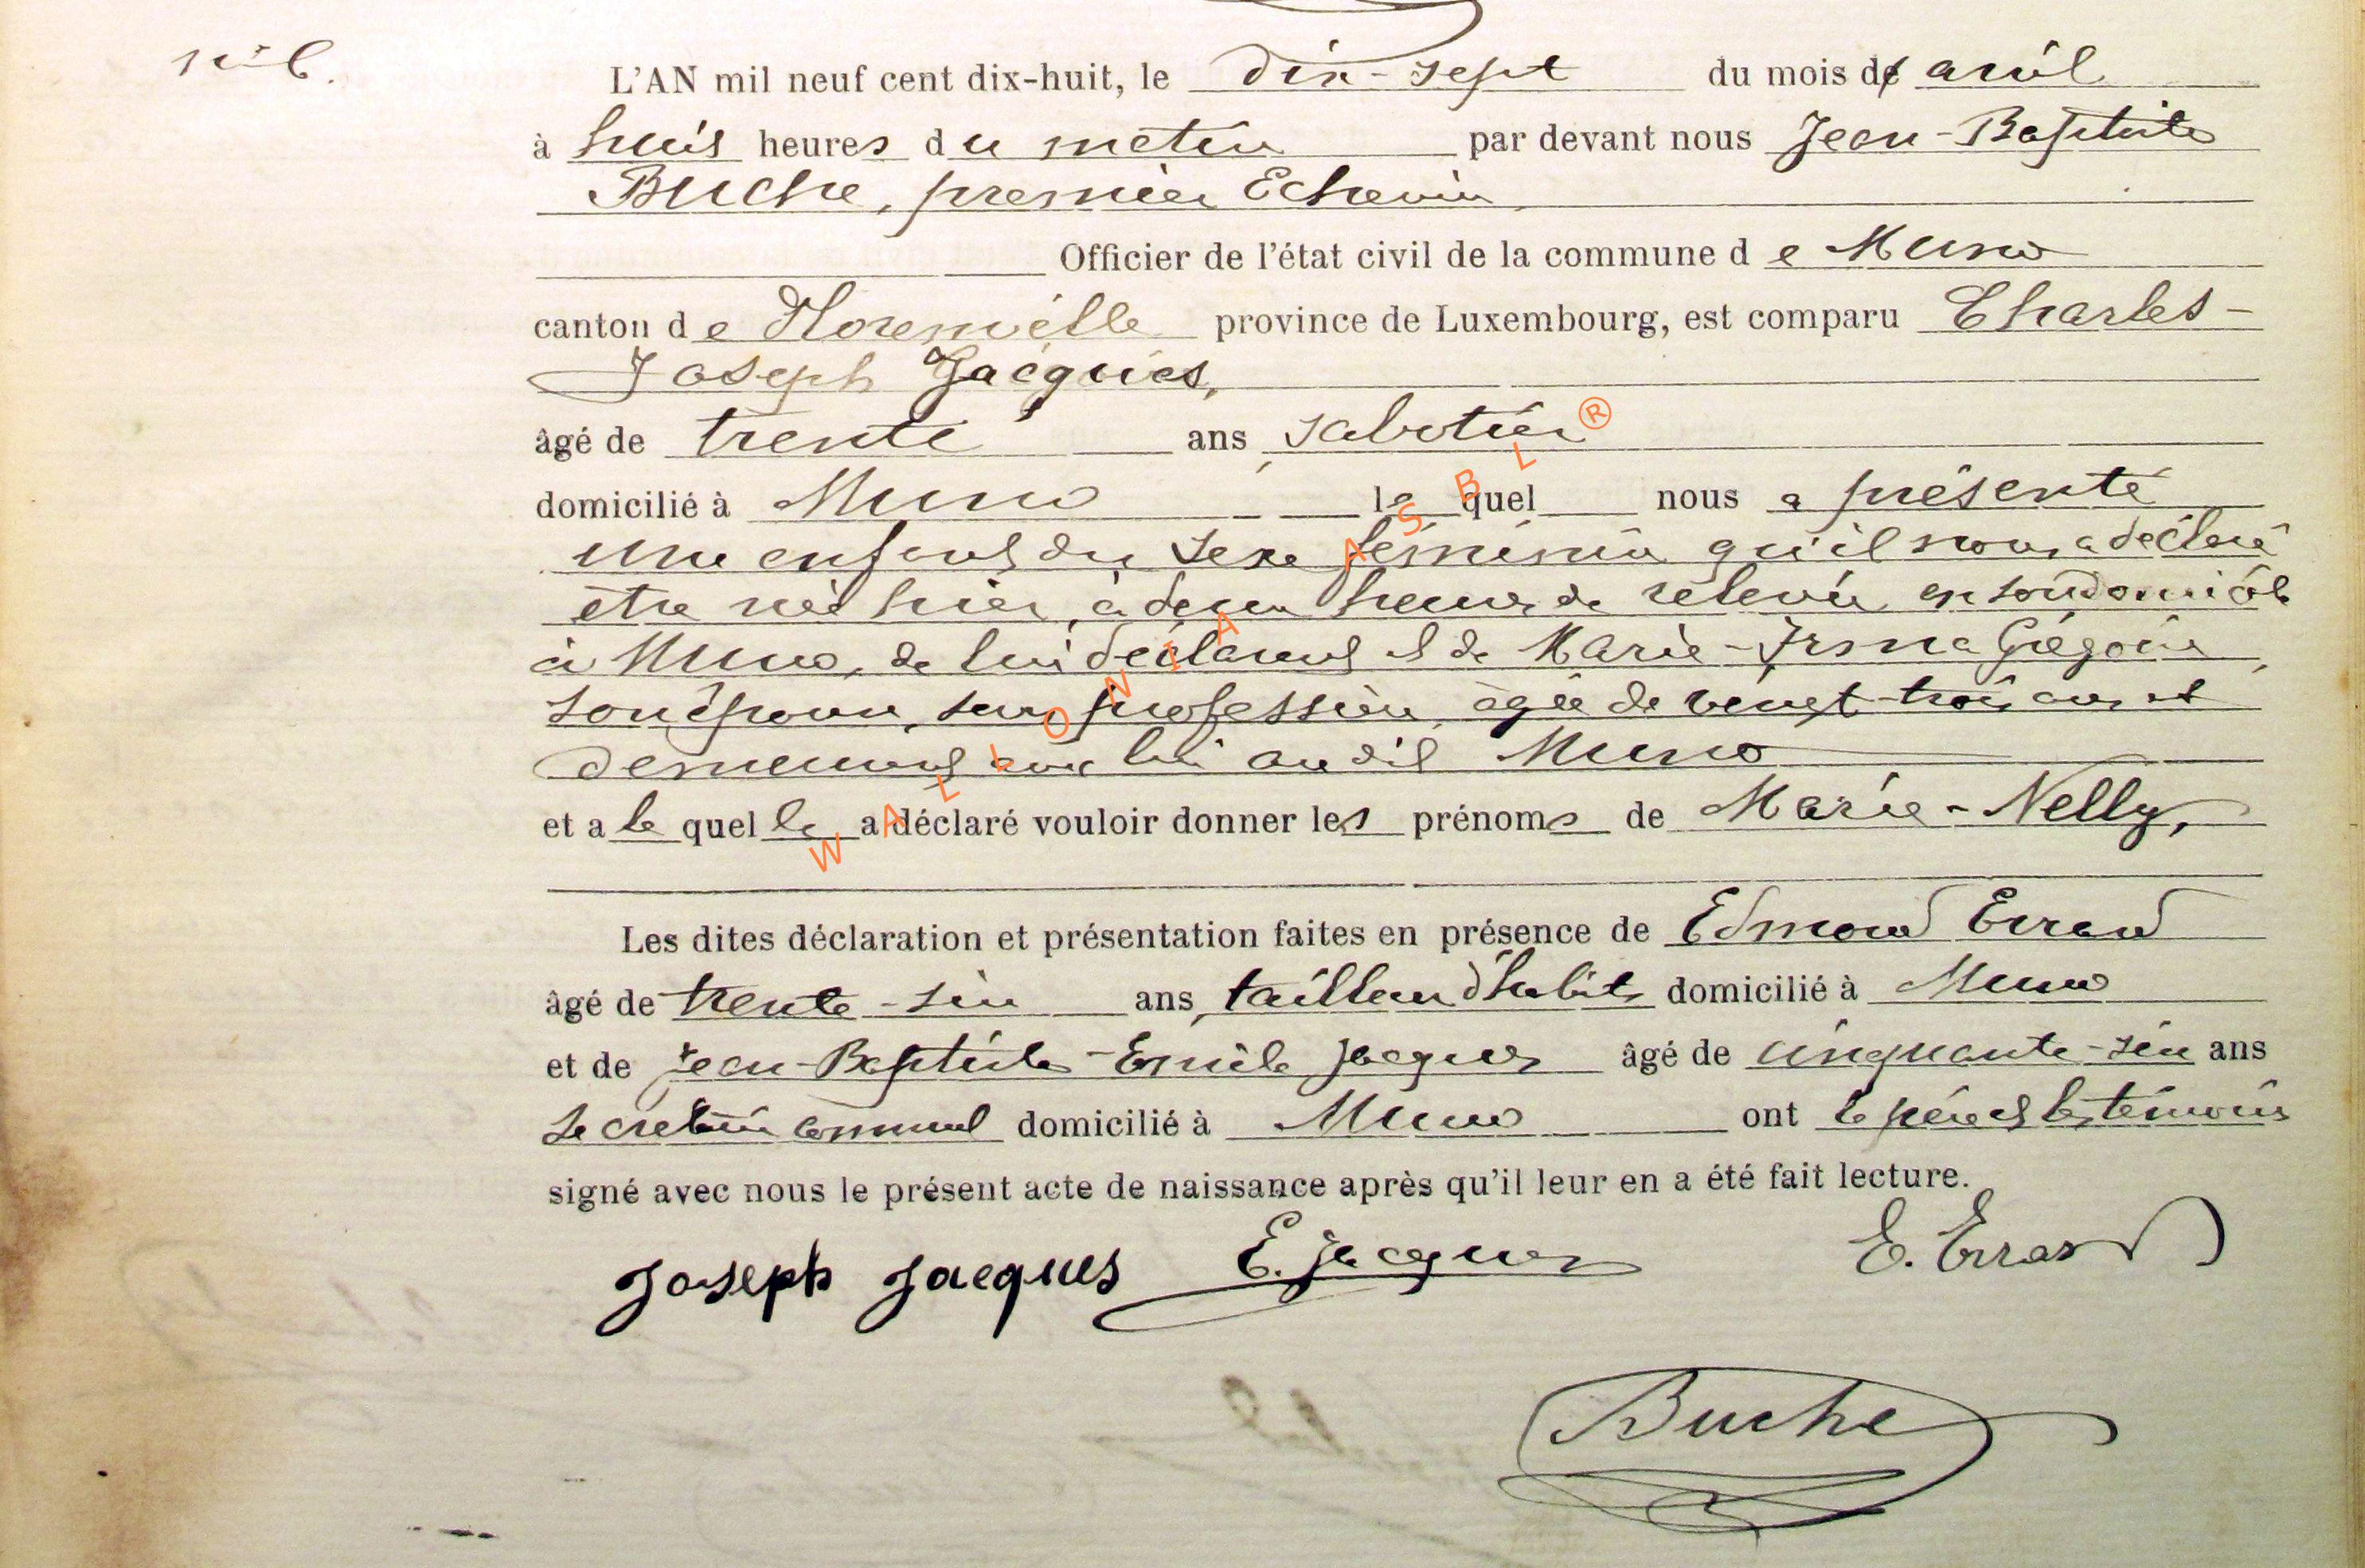 L'AN mil neuf cent dix-huit, le dix-sept du mois d' avril
à huit heures du matin par devant nous Jean-Baptiste
Buche, premier Echevin
Officier de l'état civil de la commune de Muno
canton de Florenville province de Luxembourg, est comparu Charles-
Joseph Jacques,
âgé de trente ans, sabotier
domicilié à Muno lequel nous a présenté
une enfant du sexe féminin qu'il nous a déclaré
être née hier, à deux heures de relevée en son domicile
à Muno, de lui déclarant et de Marie-Irma Grégoire,
son épouse, sans profession, âgée de vingt-trois ans et
demeurant avec lui au dit Muno
et a laquelle a déclaré vouloir donner les prénoms de Marie-Nelly,
Les dites déclaration et présentation faites en présence de Edmond Errard
âgé de trente-six ans, tailleur d'habits domicilié à Muno
et de Jean-Baptiste-Emile Jacques âgé de cinquante-six ans
secrétaire communal domicilié à Muno ont le père et les témoins
signé avec nous le présent acte de naissance après qu'il leur en a été fait lecture.
Joseph Jacques E. Jacques E. Errard
Buche
WALLONIA ASBL ®